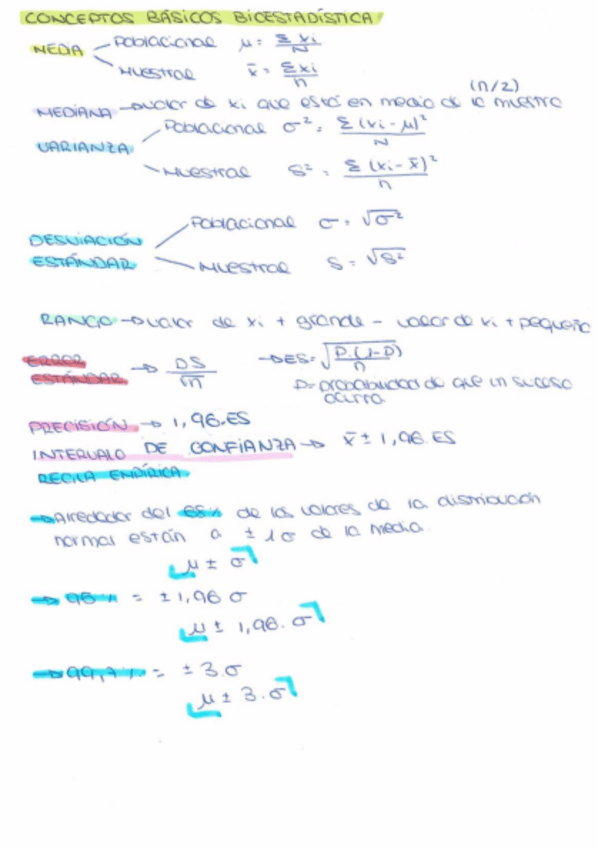 CONCEPTOS BÁSICOS BIOESTADÍSTICA
MEDIA
Poblacional μ = Σ xi / N
Muestral x̄ = Σ xi / n
MEDIANA → valor de xi que está en medio de la muestra (n/2)
VARIANZA
Poblacional σ² = Σ (xi - μ)² / N
Muestral S² = Σ (xi - x̄)² / n
DESVIACIÓN ESTÁNDAR
Poblacional σ = √σ²
Muestral S = √S²
RANGO → valor de xi + grande - valor de xi + pequeño
ERROR ESTÁNDAR → DS / √n → ES = √(P·(1-P) / n)
P = probabilidad de que un suceso
ocurra
PRECISIÓN → 1,96·ES
INTERVALO DE CONFIANZA → x̄ ± 1,96·ES
REGLA EMPÍRICA
→ Alrededor del 68% de los valores de la distribución
normal están a ± 1σ de la media.
μ ± σ
→ 95% = ± 1,96 σ
μ ± 1,96·σ
→ 99,7% = ± 3·σ
μ ± 3·σ